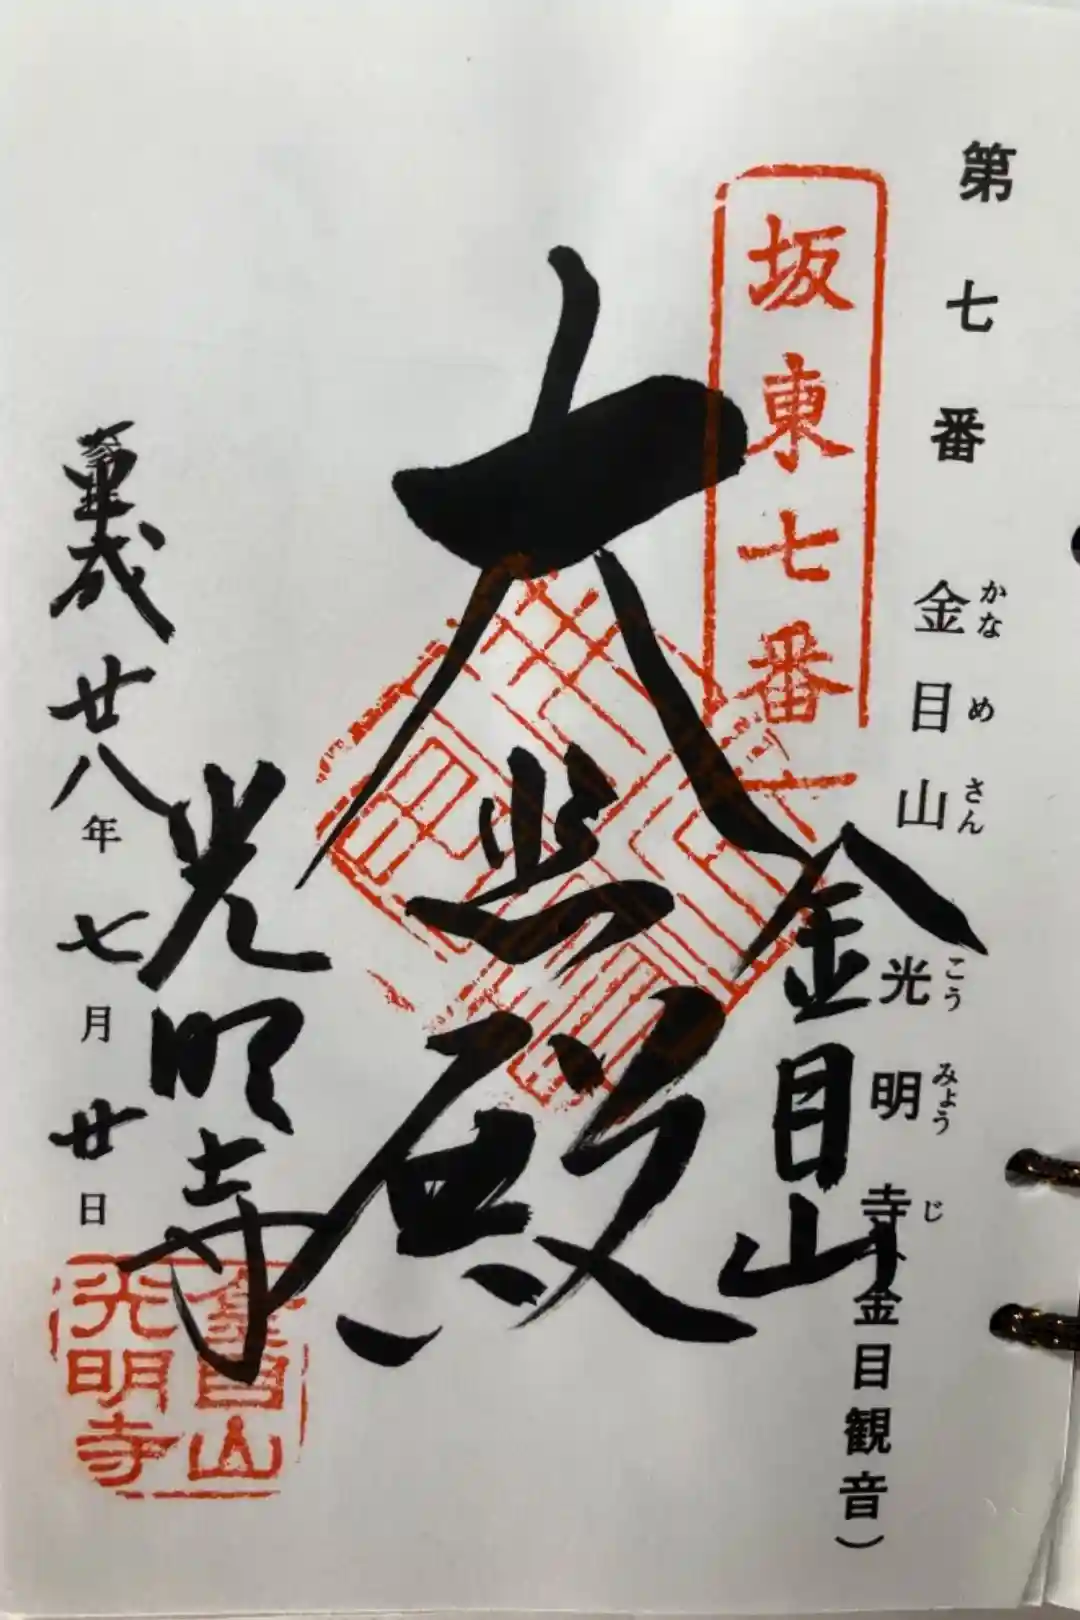 第七番 金目山 光明寺(金目観音)
かなめさん こうみょうじ
坂東七番
金目山
大悲殿
光明寺
平成廿八年七月廿日
金目山
光明寺